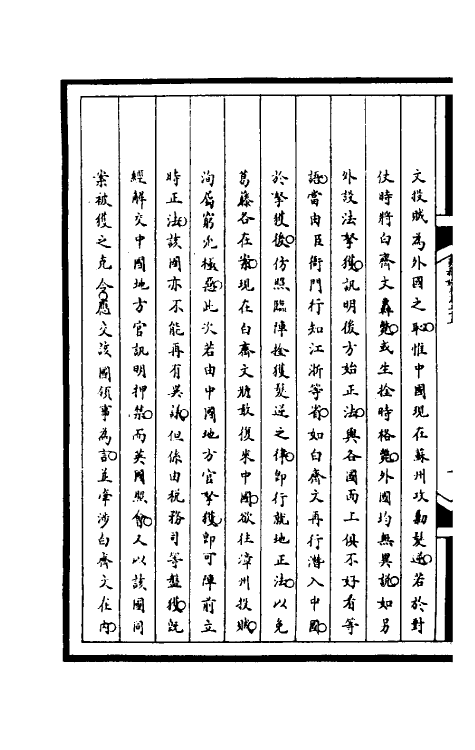 文投賊為外國之恥惟中國現在蘇州攻勦髮逆若於對
仗時將白齊文轟斃或生拴時格斃外國均無異說如另
外設法拏獲訊明後方始正法與各國面上俱不好看等
語當由臣衙門行知江浙等省如白齊文再行潛入中國
於拏獲後仿照臨陣拴獲髮逆之律即行就地正法以免
葛藤各在案現在白齊文膽敢復來中國欲往漳州投賊
洵屬窮兇極惡此次若由中國地方官拏獲即可陣前立
時正法該國亦不能再有異議但係由稅務司等盤獲既
經解交中國地方官訊明押禁而英國照會又以該國同
案被獲之克令應交該國領事為言並牽涉白齊文在內